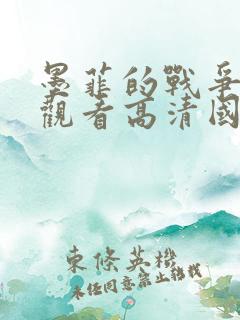 墨菲的戰爭
觀看高清國
東條英機
未經同意禁止轉載